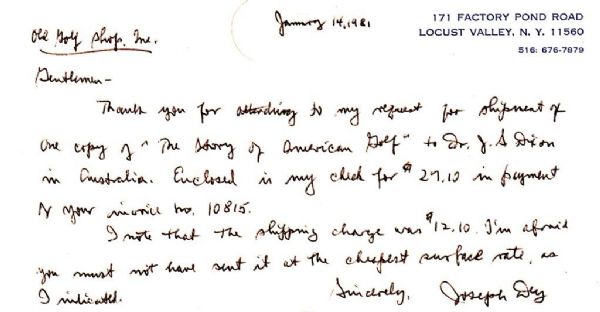 January 14, 1981
171 FACTORY POND ROAD
LOCUST VALLEY, N. Y. 11560
516: 676-7879
Old Golf Shop, Inc.
Gentlemen-
Thank you for attending to my request for shipment of
one copy of "The Story of American Golf" to Dr. J. S Dixon
in Australia. Enclosed is my check for $27.10 in payment
of your invoice no. 10815.
I note that the shipping charge was $12.10. I'm afraid
you must not have sent it at the cheapest surface rate, as
I indicated.
Sincerely,
Joseph Dey